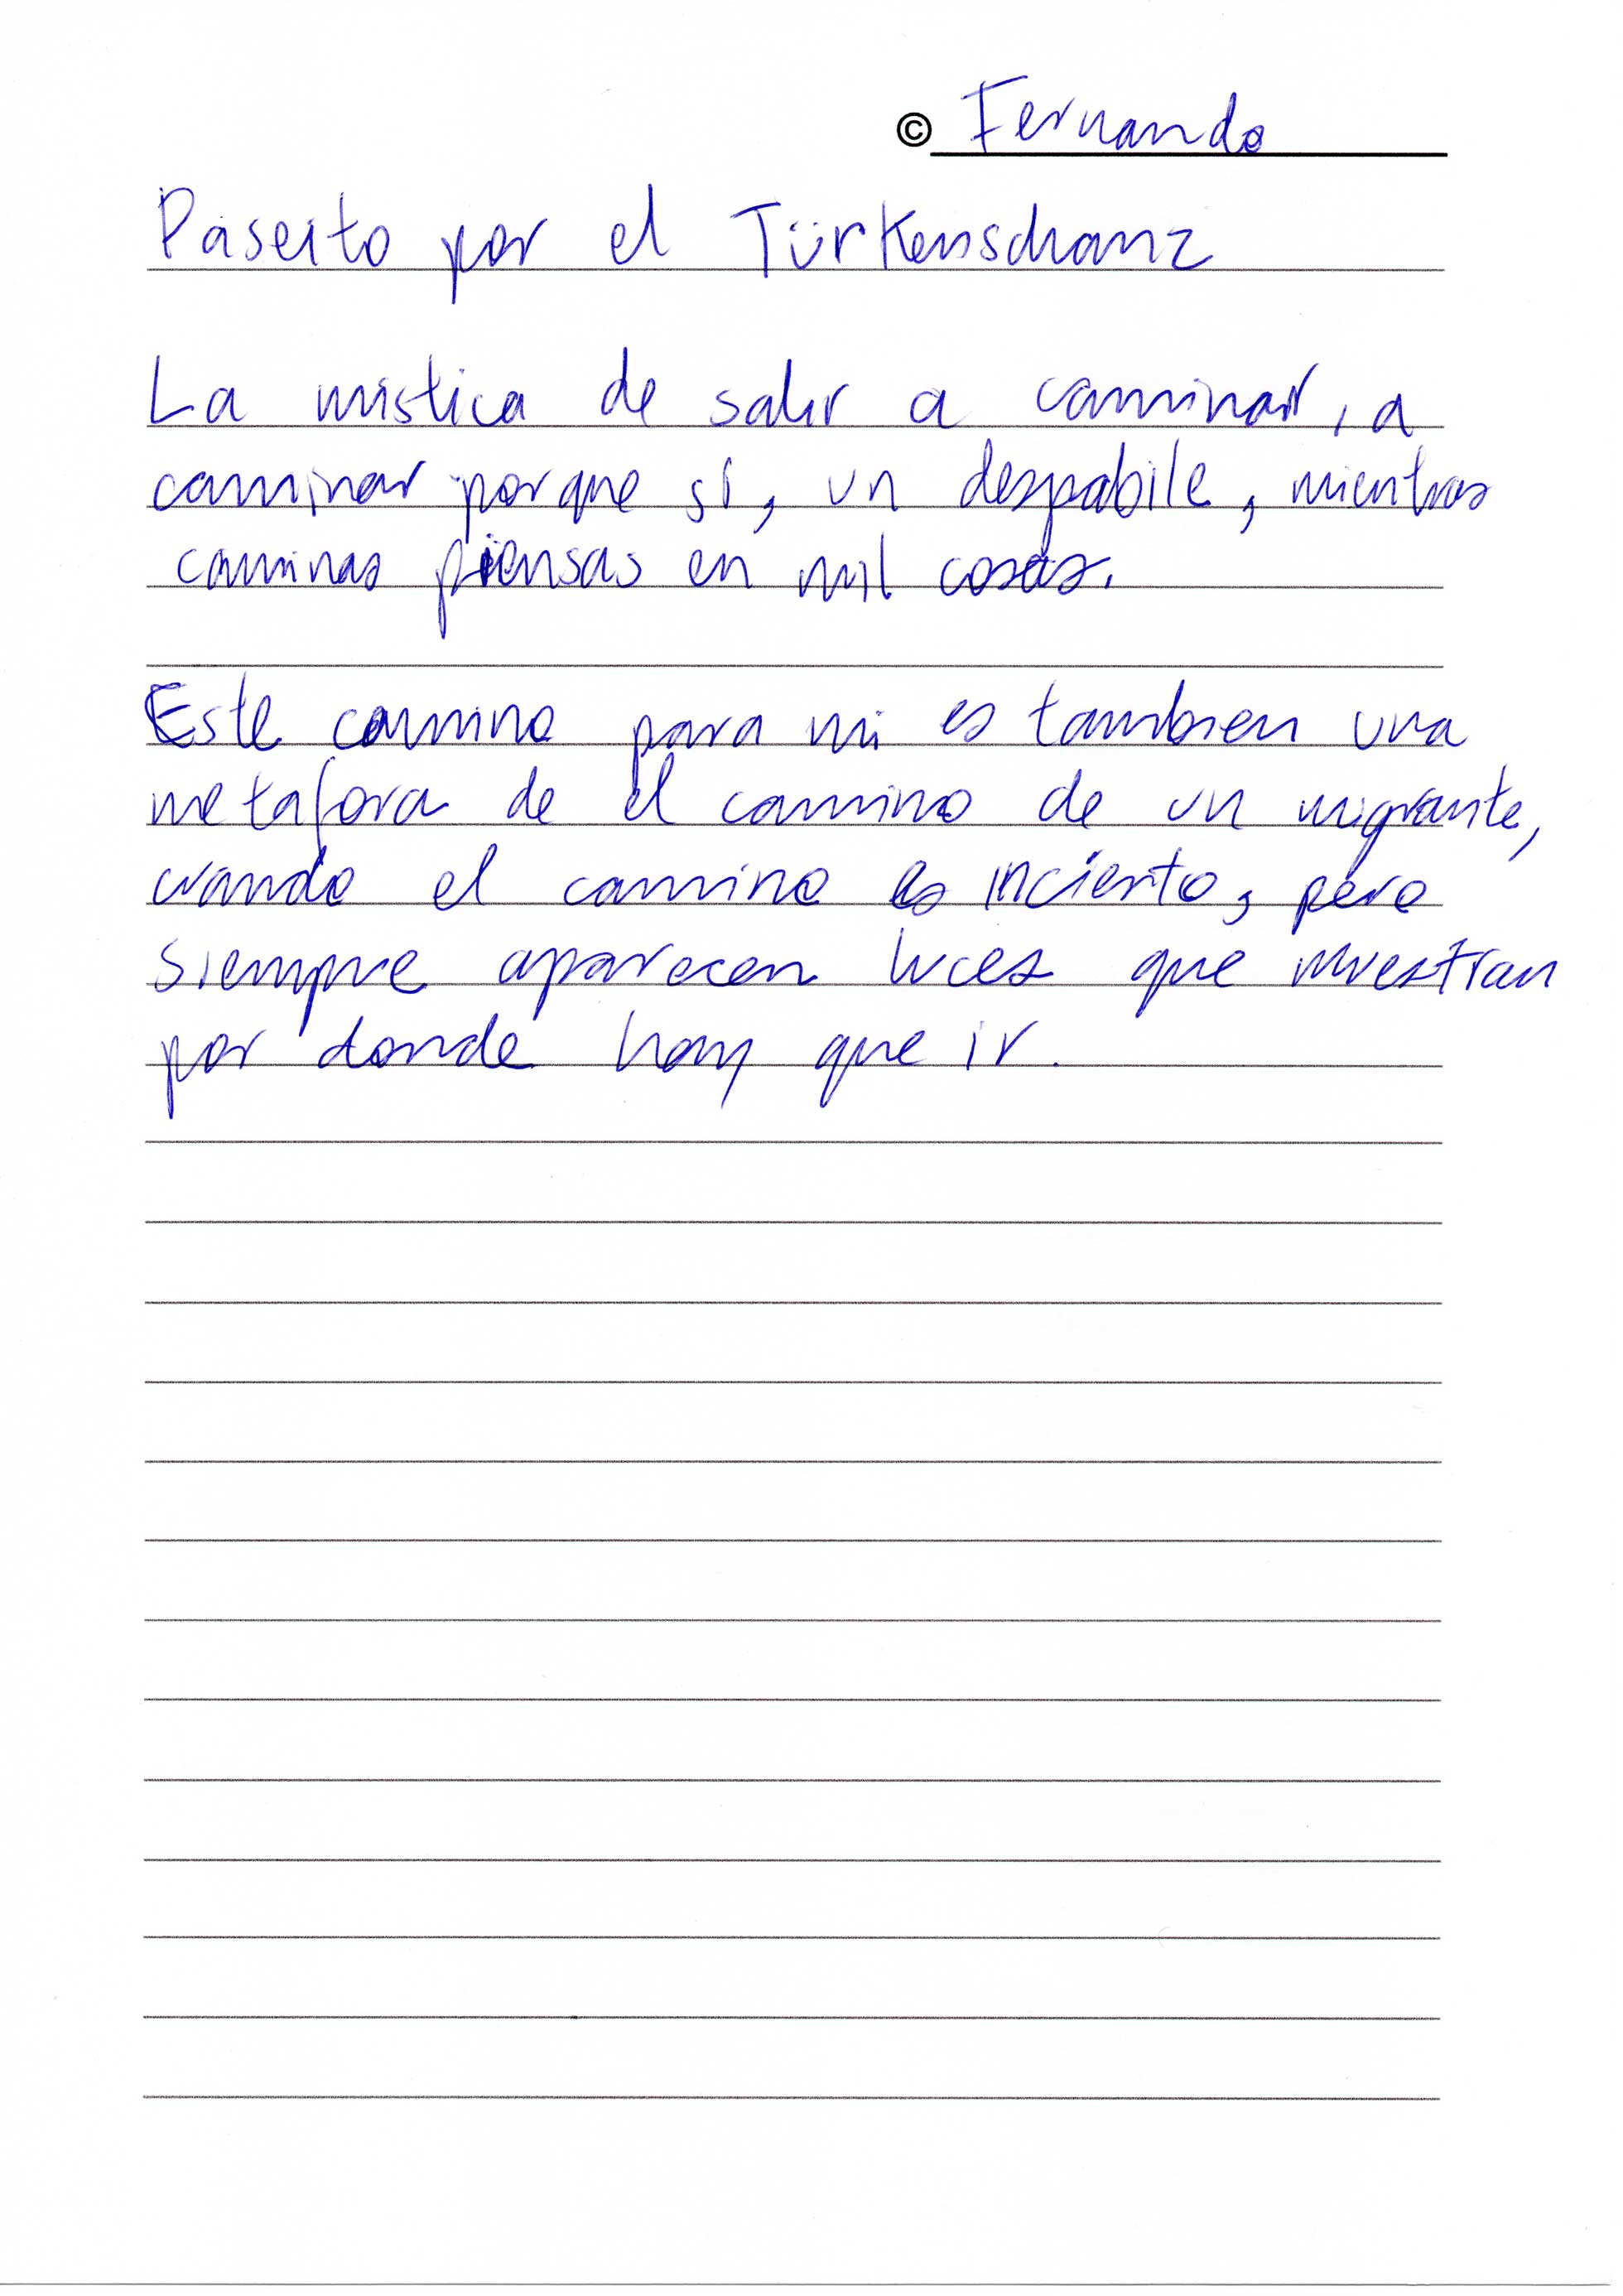 © Fernando
Paseito por el Türkenschanz
La mistica de salir a caminar, a
caminar porque sí, un despabile, mientras
caminas piensas en mil cosas.
Este camino para mi es tambien una
metafora de el camino de un migrante,
cuando el camino es incierto, pero
siempre aparecen luces que muestran
por donde hay que ir.